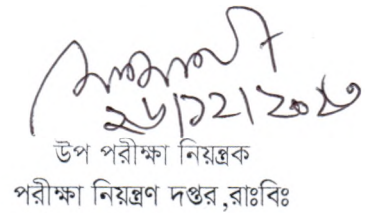 ২৮/১২/২০২৩
উপ পরীক্ষা নিয়ন্ত্রক
পরীক্ষা নিয়ন্ত্রণ দপ্তর,রাঃবিঃ